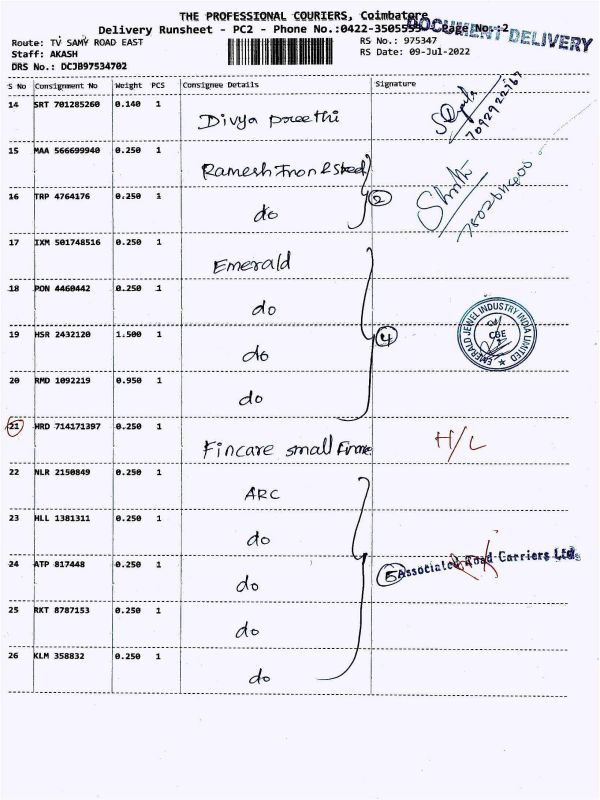 THE PROFESSIONAL COURIERS, Coimbatore
Delivery Runsheet - PC2 - Phone No.:0422-3505555 Page No.:2
DOCUMENT DELIVERY
Route: TV SAMY ROAD EAST RS No.: 975347
Staff: AKASH RS Date: 09-Jul-2022
DRS No.: DCJB97534702
S No Consignment No Weight PCS Consignee Details Signature
14 SRT 701285260 0.140 1 Divya preethi
15 MAA 566699940 0.250 1 Ramesh Iron & Steel
16 TRP 4764176 0.250 1 do 2
17 IXM 501748516 0.250 1 Emerald
18 PON 4460442 0.250 1 do
19 HSR 2432120 1.500 1 do 4
EMERALD JEWEL INDUSTRY INDIA LIMITED
CBE
20 RMD 1092219 0.950 1 do
21 HRD 714171397 0.250 1 Fincare small Finance H/L
22 NLR 2150849 0.250 1 ARC
23 HLL 1381311 0.250 1 do
24 ATP 817448 0.250 1 do 5 Associated Road Carriers Ltd
25 RKT 8787153 0.250 1 do
26 KLM 358832 0.250 1 do